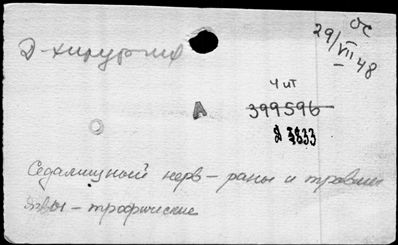 ОС
29/VII 48
Д-хирургия
Чит
А
399596
Д 7833
Седалищный нерв – раны и травмы
Язвы – трофические